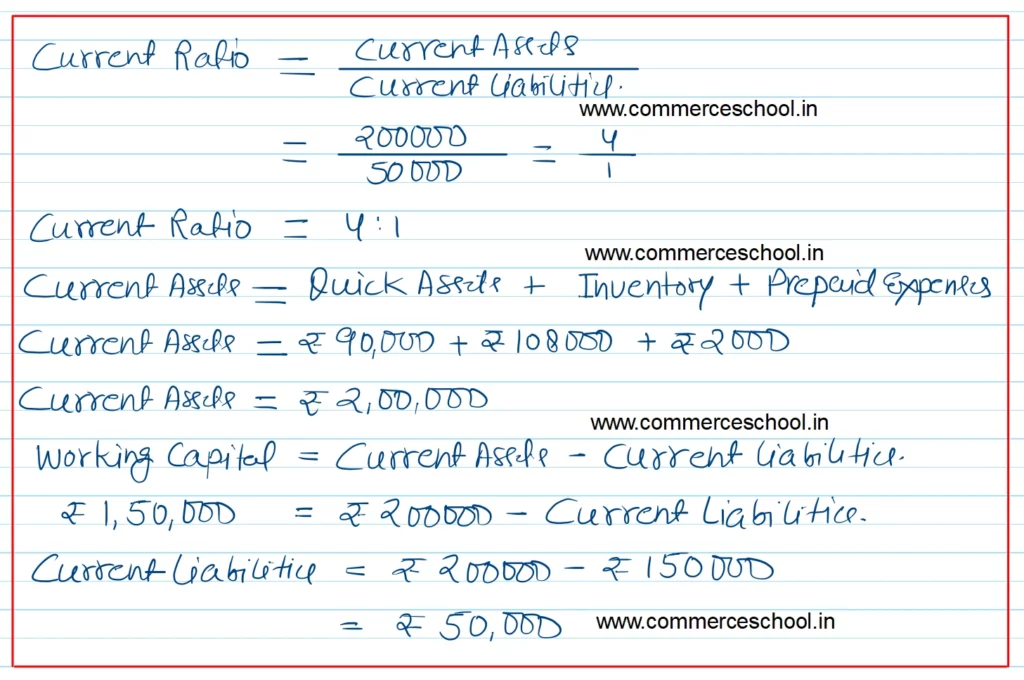 Current Ratio = Current Assets / Current Liabilities.
www.commerceschool.in
= 200000 / 50000 = 4 / 1
Current Ratio = 4:1
www.commerceschool.in
Current Assets = Quick Assets + Inventory + Prepaid Expenses
Current Assets = ₹ 90,000 + ₹ 108000 + ₹ 2000
Current Assets = ₹ 2,00,000
www.commerceschool.in
Working Capital = Current Assets - Current Liabilities.
₹ 1,50,000 = ₹ 200000 - Current Liabilities.
Current Liabilities = ₹ 200000 - ₹ 150000
= ₹ 50,000
www.commerceschool.in